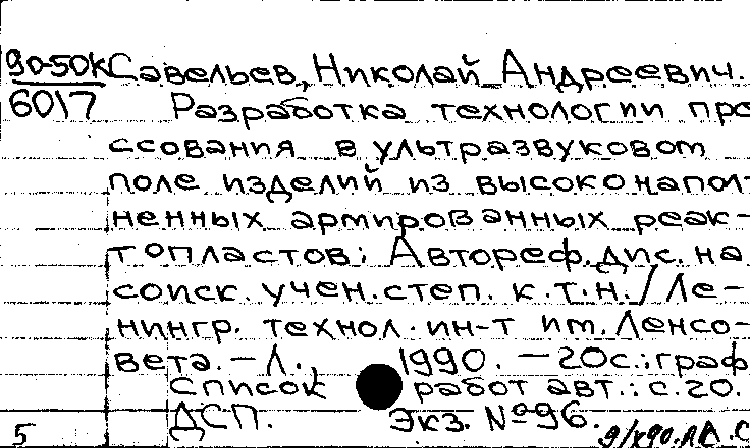 90-50к Савельев, Николай Андреевич.
6017 Разработка технологии про
ссования в ультразвуковом
поле изделий из высоконапол-
ненных армированных реак-
топластов: Автореф. дис. на
соиск. учен. степ. к.т.н. / Ле-
нингр. технол. ин-т им. Ленсо-
вета. - Л., 1990. - 20с.: граф
Список работ авт.: с.20.
ДСП. Экз. №96.
5 9/х90.